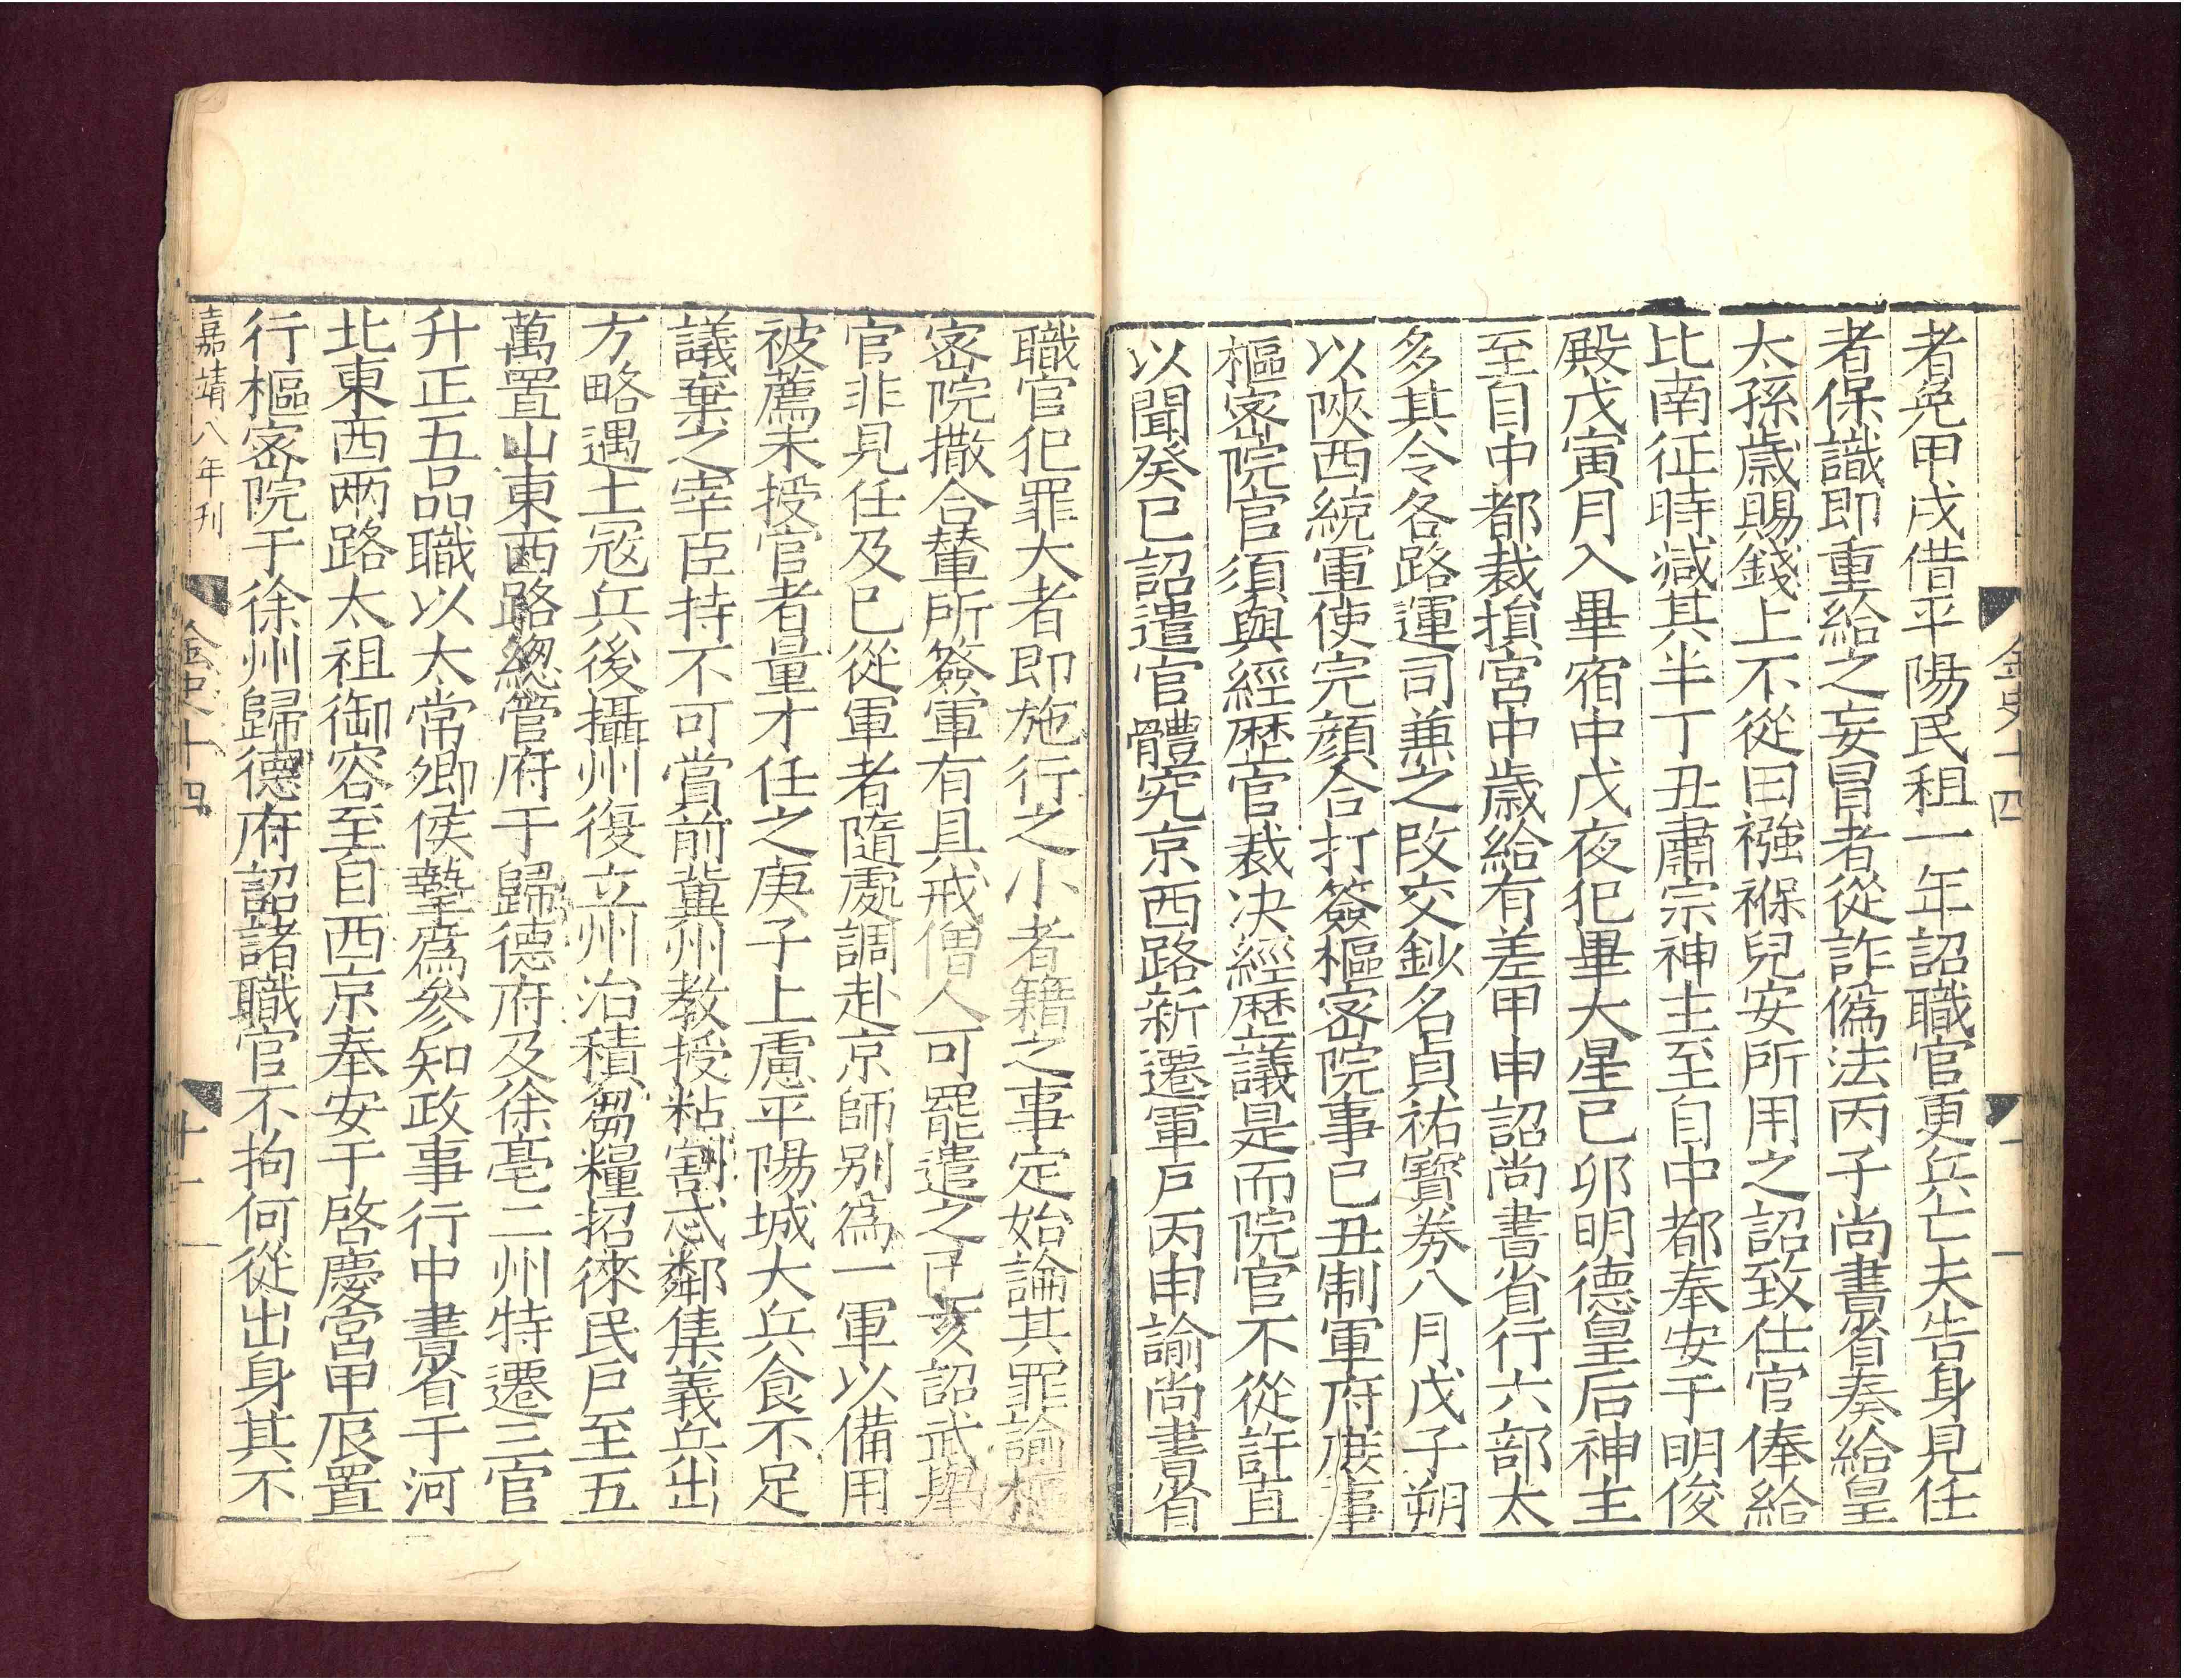 金史十四
十一
者免甲戌借平陽民租一年詔職官更兵亡夫告身見任
者保識即重給之妄冒者從詐僞法丙子尚書省奏給皇
太孫歳賜錢上不從曰襁褓兒安所用之詔致仕官俸給
比南征時減其半丁丑肅宗神主至自中都奉安于明俊
殿戊寅月入畢宿中戊夜犯畢大星己卯明德皇后神主
至自中都裁損宮中歳給有差甲申詔尚書省行六部太
多其令各路運司兼之改交鈔名貞祐寳券八月戊子朔
以陜西統軍使完顔合打簽樞宻院事己丑制軍府庶事
樞宻院官須與經歴官裁决經歴議是而院官不從許直
以聞癸巳詔遣官體究京西路新遷軍戶丙申諭尚書省
職官犯罪大者即施行之小者籍之事定始論其罪諭樞
宻院撒合輦所簽軍有具戒僧人可罷遣之己亥詔武舉
官非見任及已從軍者隨處調赴京師别爲一軍以備用
被薦未授官者量才任之庚子上慮平陽城大兵食不足
議棄之宰臣持不可賞前冀州教授粘割忒鄰集義兵出
方略遇土冦兵後攝州復立州治積芻糧招徠民戶至五
萬置山東西路緫管府于歸德府及徐亳二州特遷三官
升正五品職以太常卿侯摯爲參知政事行中書省于河
北東西兩路太祖御容至自西京奉安于啓慶宮甲辰置
行樞宻院于徐州歸德府詔諸職官不拘何從出身其不
嘉靖八年刊
金史十四
十二